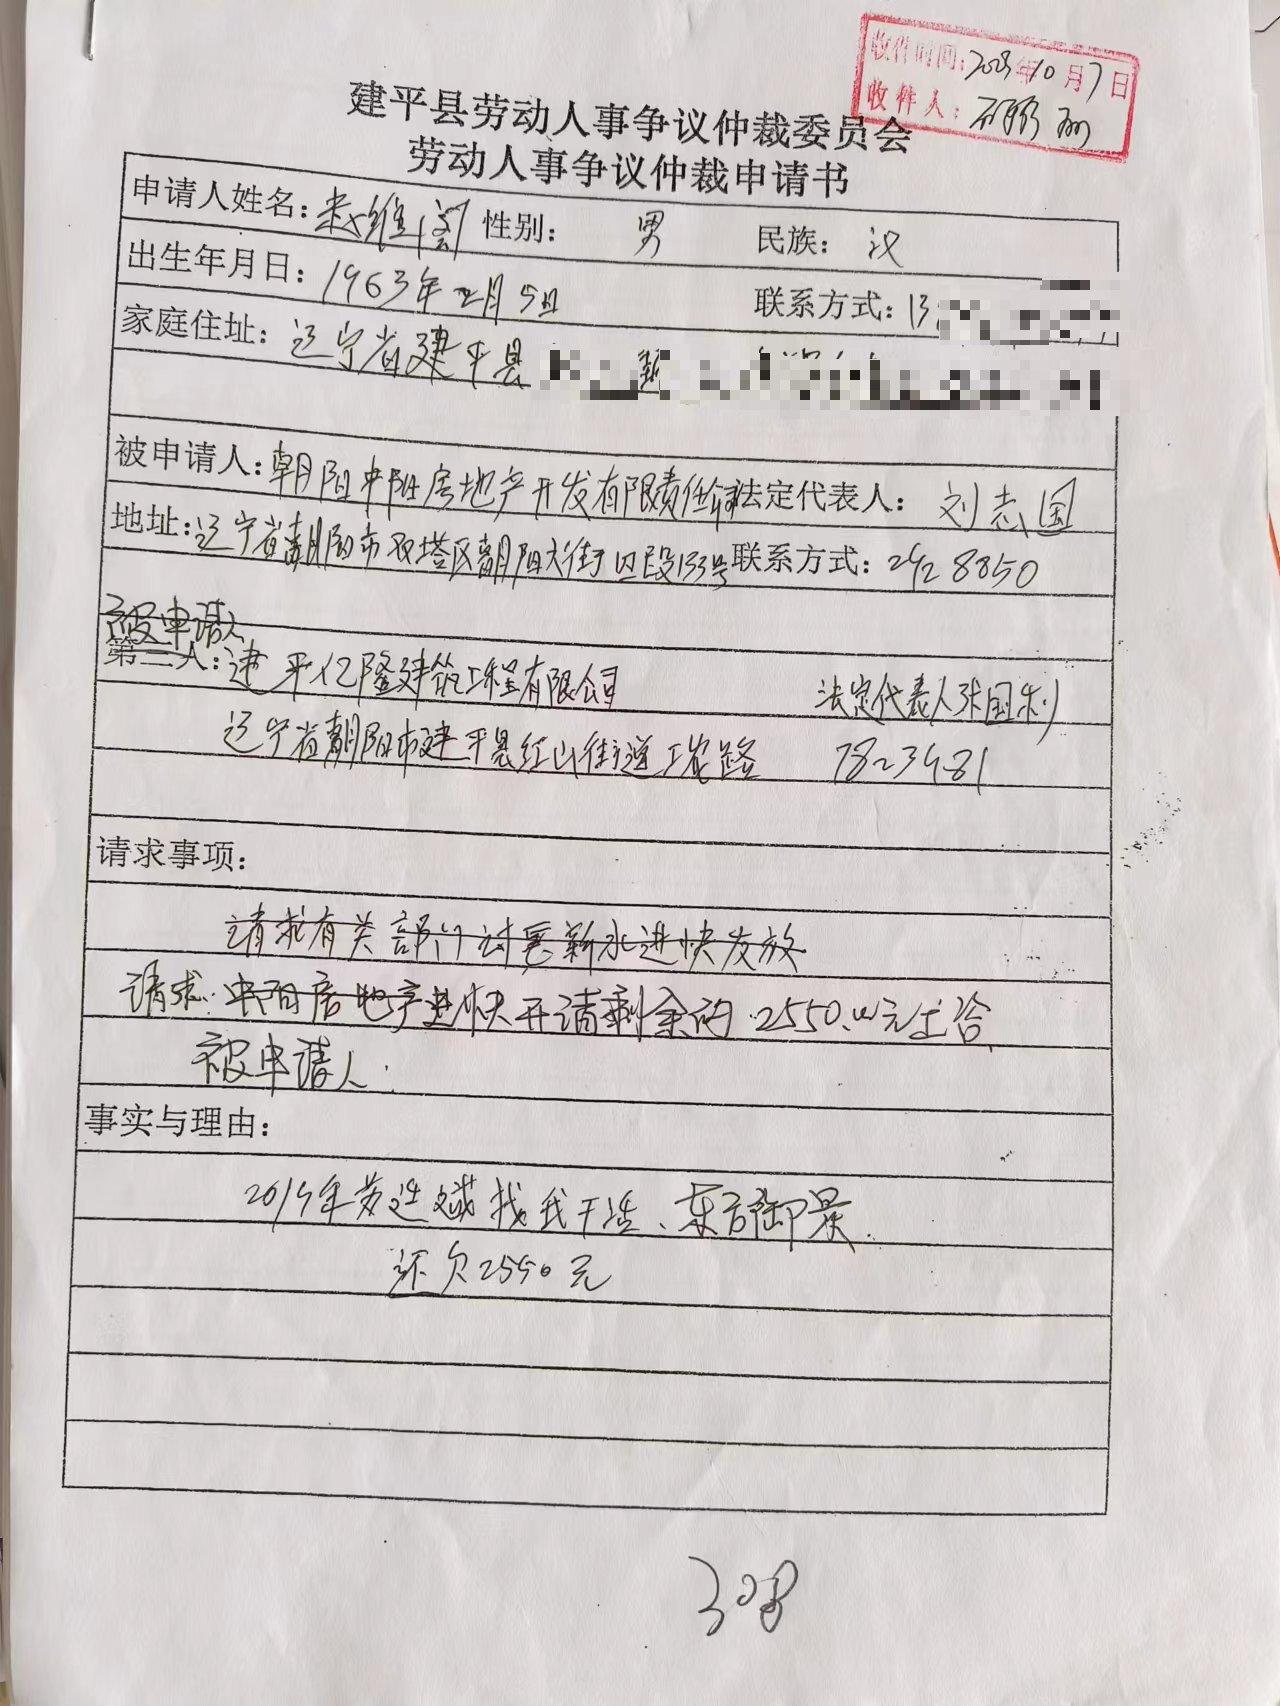 收件时间:2023年10月7日
收件人:
建平县劳动人事争议仲裁委员会
劳动人事争议仲裁申请书
申请人姓名: 性别: 男 民族: 汉
出生年月日:1963年2月5日 联系方式:13
家庭住址: 辽宁省建平县
被申请人:朝阳中阳房地产开发有限责任公司法定代表人: 刘志国
地址:辽宁省朝阳市双塔区朝阳大街四段133号联系方式:2928850
被申请人
第三人:建平亿隆建筑工程有限公司 法定代表人张国利
辽宁省朝阳市建平县红山街道工农路 7823481
请求事项:
请求有关部门讨要薪水进快发放
请求:中阳房地产进快开请剩余的2550.00元
被申请人.
事实与理由:
2019年 找我干活、东方御景.
还欠2550元